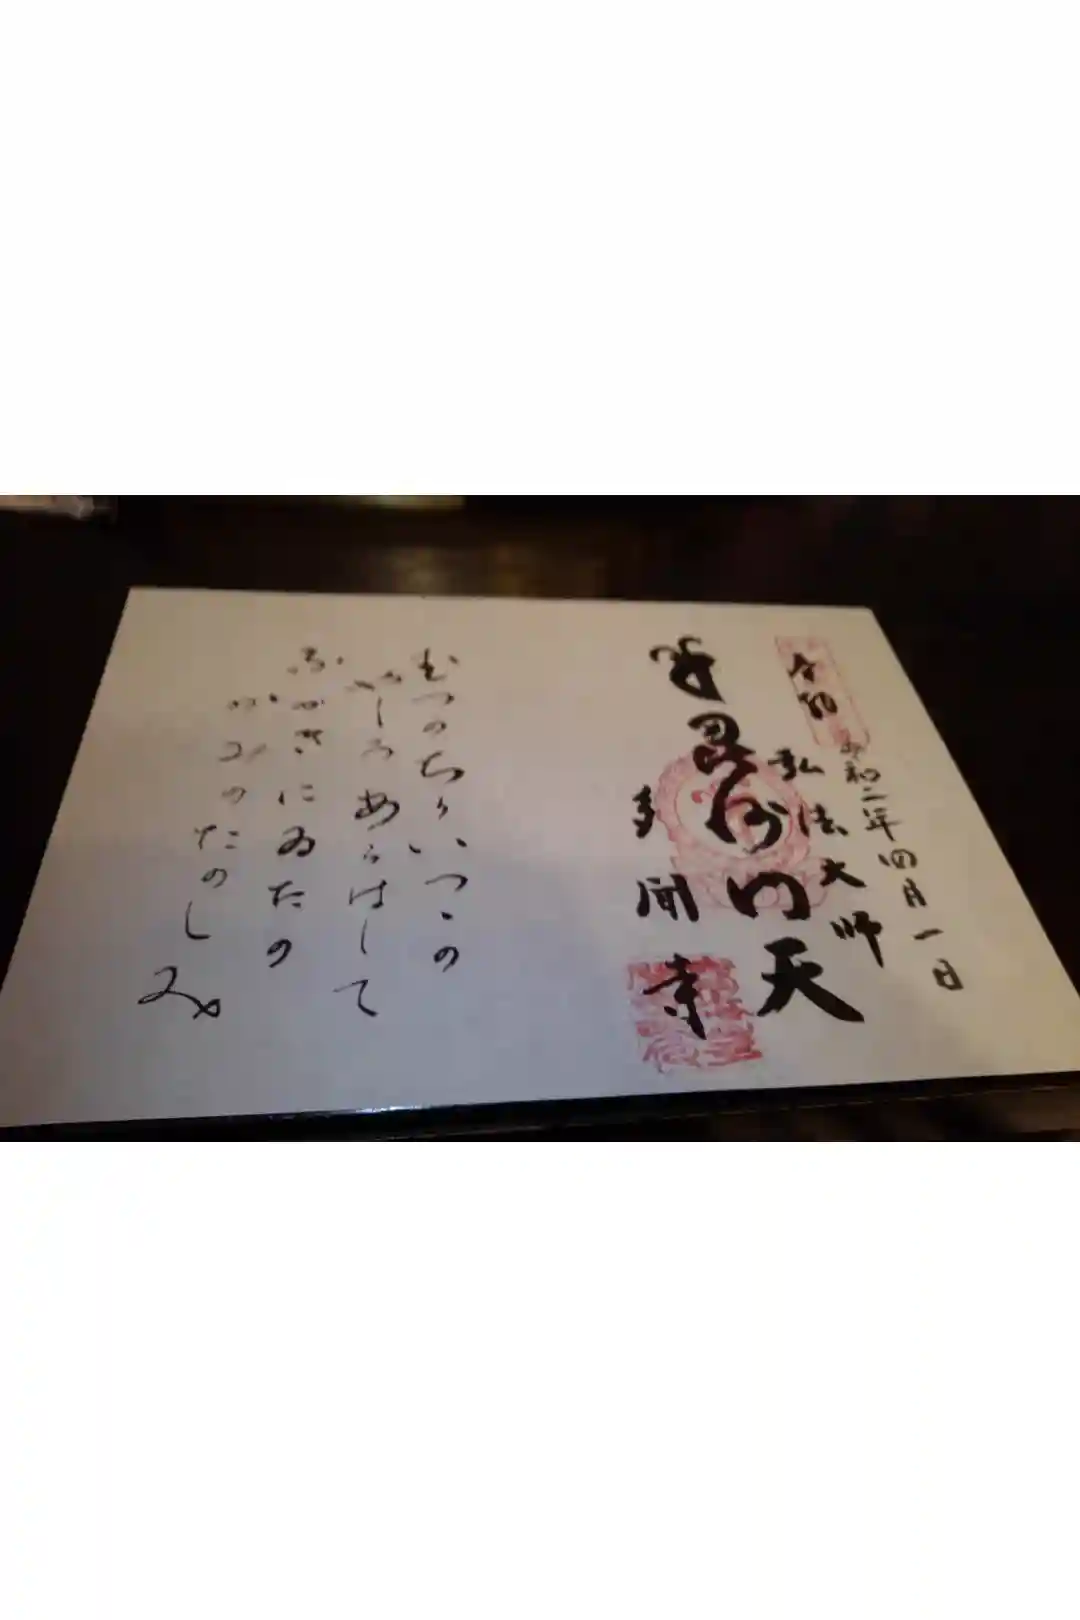 令和二年四月一日
弘法大師
毘沙門天
多聞寺
むつのちりいつゝの
やしろあらはして
ふかきにゐたの
かみのたのしみ